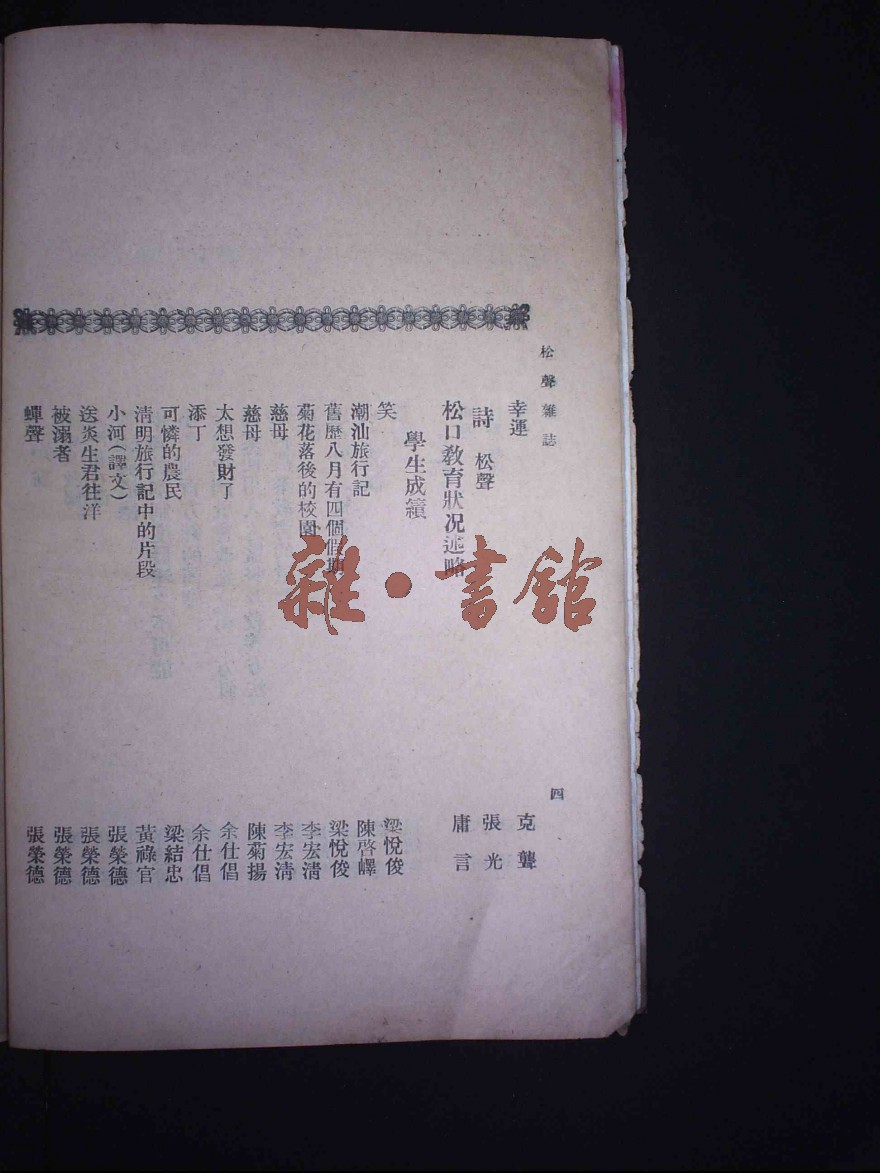 松聲雜誌 四
幸運 克龔
詩 松聲 張光
松口教育狀況述略 庸言
學生成績
笑 梁悅俊
潮汕旅行記 陳啓嶧
舊歷八月有四個假期 梁悅俊
菊花落後的校園 李宏清
慈母 李宏清
慈母 陳菊揚
太想發財了 余仕倡
添丁 余仕倡
可憐的農民 梁結忠
清明旅行記中的片段 黃祿官
小河(譯文) 張榮德
送炎生君往洋 張榮德
被溺者 張榮德
蟬聲 張榮德
雜·書館